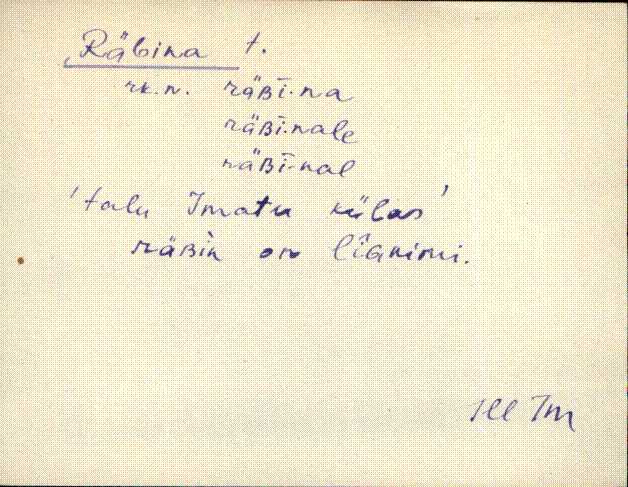 Räbina t.
rk.n. räʙī·na
räʙī·nale
räʙī·nal
'talu Imatu külas'
räʙìn on lîanimi.
Ill Im